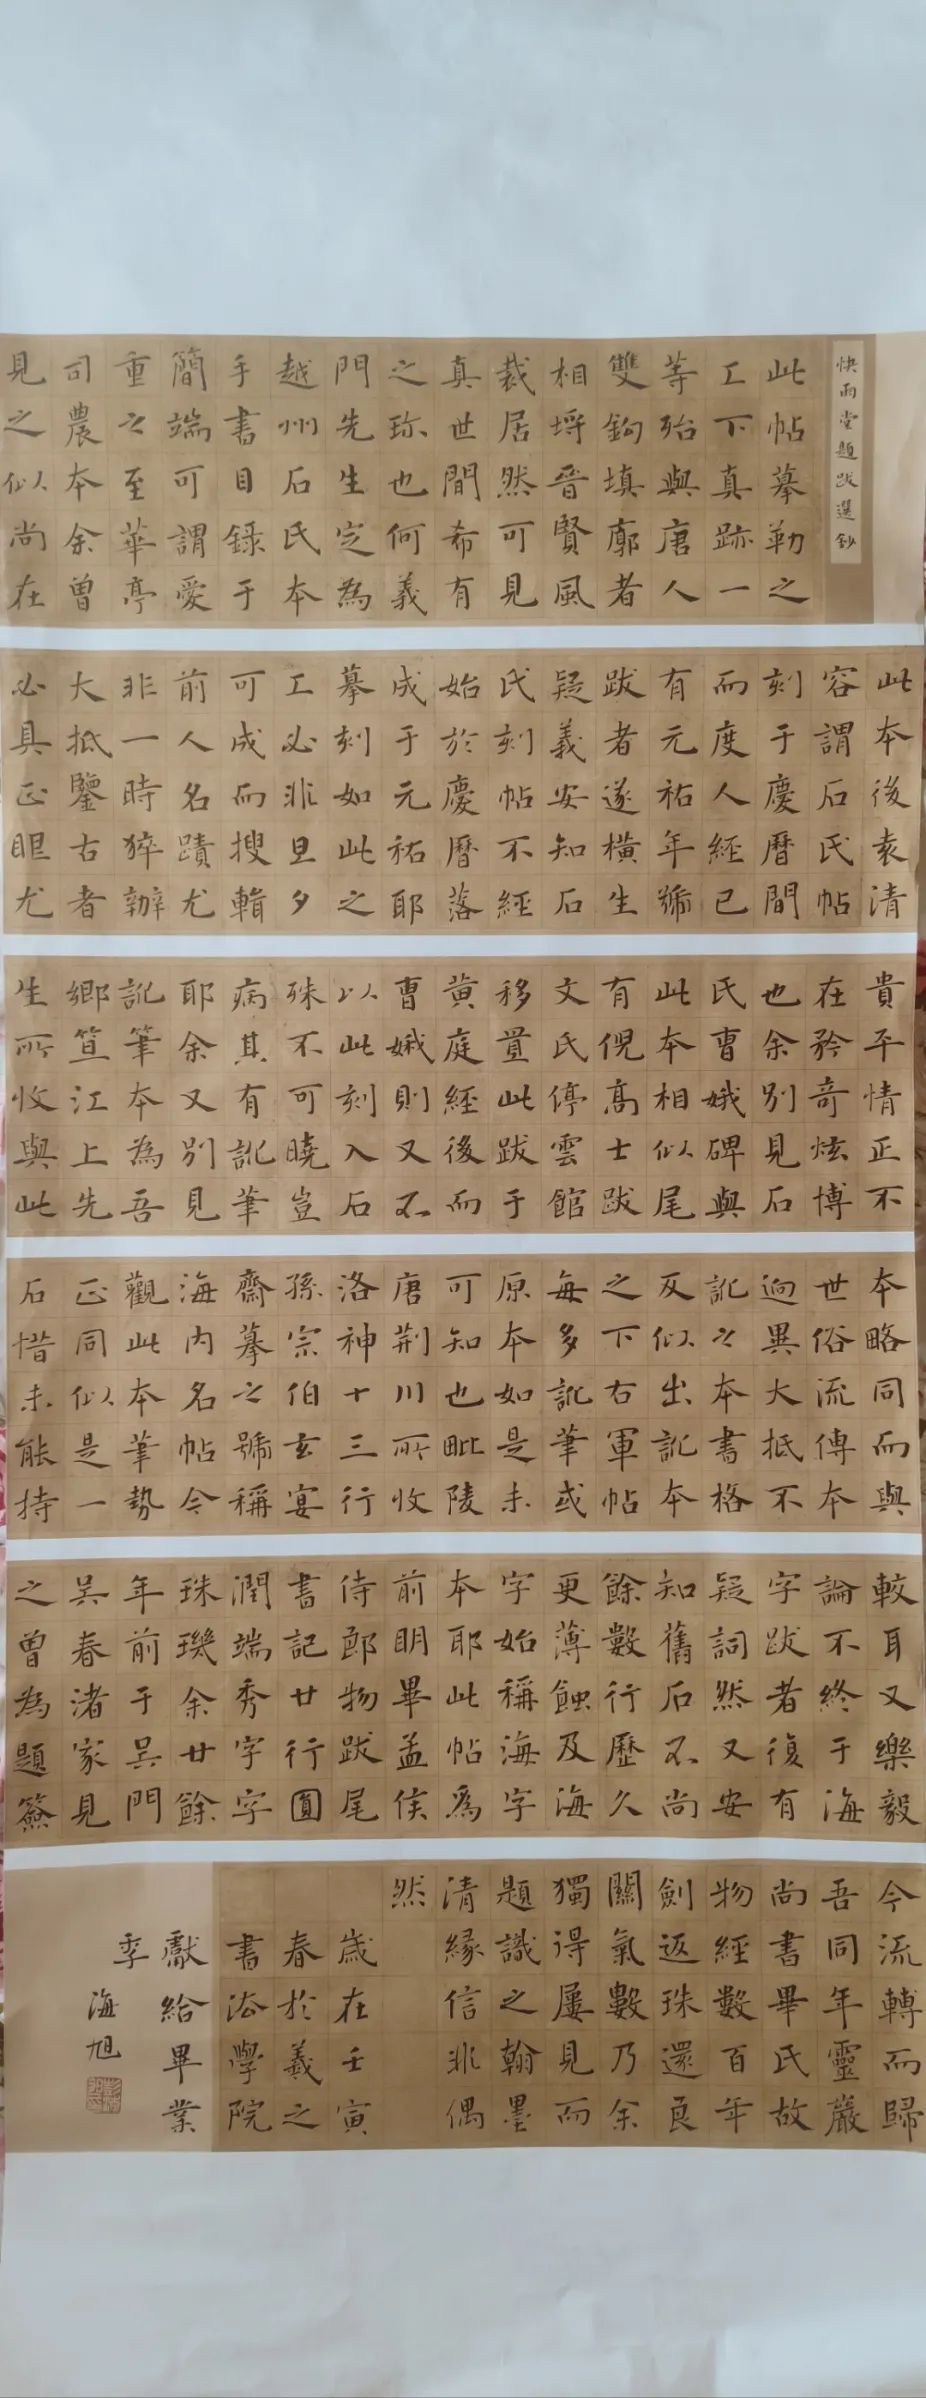 快雨堂題跋選鈔
此帖摹勒之
工下真跡一
等殆與唐人
雙鈎填廓者
相埒晉賢風
裁居然可見
真世間希有
之珎也何義
門先生定為
越州石氏本
手書目錄于
簡端可謂愛
重之至華亭
司農本余曾
見之似尚在
此本後袁清
容謂石氏帖
刻于慶曆間
而度人經已
有元祐年號
跋者遂橫生
疑義安知石
氏刻帖不經
始於慶曆落
成于元祐耶
摹刻如此之
工必非旦夕
可成而搜輯
前人名蹟尤
非一時猝辦
大抵鑒古者
必具正眼尤
貴平情正不
在矜奇炫博
也余別見石
氏曹娥碑與
此本相似尾
有倪高士跋
文氏停雲館
移置此跋于
黃庭經後而
曹娥則又不
以此刻入石
殊不可曉豈
病其有訛筆
耶余又別見
訛筆本為吾
鄉笪江上先
生所收與此
本略同而與
世俗流傳本
迥異大抵不
訛之本書格
反似出訛本
之下右軍帖
每多訛筆或
原本如是未
可知也毗陵
唐荊川所收
洛神十三行
孫宗伯玄宴
齋摹之號稱
海內名帖今
觀此本筆勢
正同似是一
石惜未能持
較耳又樂毅
論不終于海
字跋者復有
疑詞然又安
知舊石不尚
餘數行歷久
更薄蝕及海
字始稱海字
本耶此帖為
前明畢孟侯
侍郎物跋尾
書記廿行圓
潤端秀字字
珠璣余廿餘
年前于吳門
吳春渚家見
之曾為題簽
今流轉而歸
吾同年靈巖
尚書畢氏故
物經數百年
劍返珠還良
關氣數乃余
獨得屢見而
題識之翰墨
清緣信非偶
然
歲在壬寅
春於義之
書法學院
獻給畢業
季
海旭